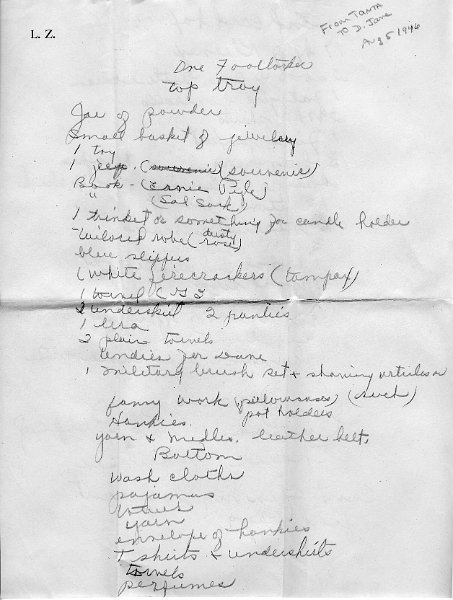 L. Z.
From TANTA
to D. Jane
Aug 5 1946
One Footlocker
top tray
Jar of powder
Small basket of jewelry
1 toy
1 jeep. (souvenir) (souvenir)
Book - (Ernie Pyle)
" (Sad Sack)
1 trinket or something for candle holder
tailored robe (dusty rose)
blue slippers
1 white firecrackers (tampax)
1 towel
2 underskirt 2 panties
1 bra
2 plain towels
undies for Diane
1 military brush set + shaving articles
fancy work (pillowcases) (such)
Hankies. pot holders
yarn & needles. leather belt.
Bottom
wash cloths
pajamas
yarn
envelope of hankies
T shirts & undershirts
towels
perfumes